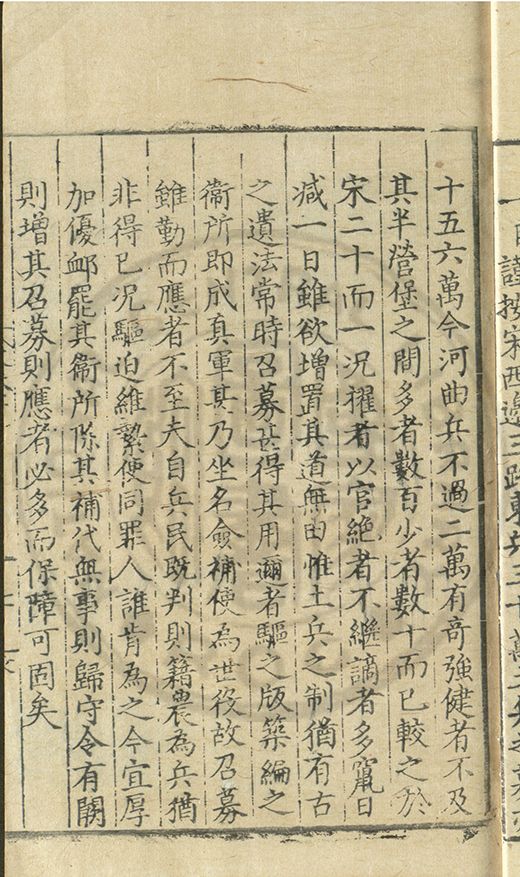 十五六萬今河曲兵不過二萬有奇強健者不及
其半營堡之間多者數百少者數十而已較之於
宋二十而一況擢者以官絶者不繼謫者多竄日
减一日雖欲增置其道無由惟土兵之制猶有古
之遺法常時召募甚得其用邇者驅之版築編之
衞所即成真軍其乃坐名僉補使為世役故召募
雖勤而應者不至夫自兵民既判則籍農為兵猶
非得已况驅迫維縶使同罪人誰肯為之今宜厚
加優䘏罷其衞所除其補代無事則歸守令有關
則增其召募則應者必多而保障可固矣